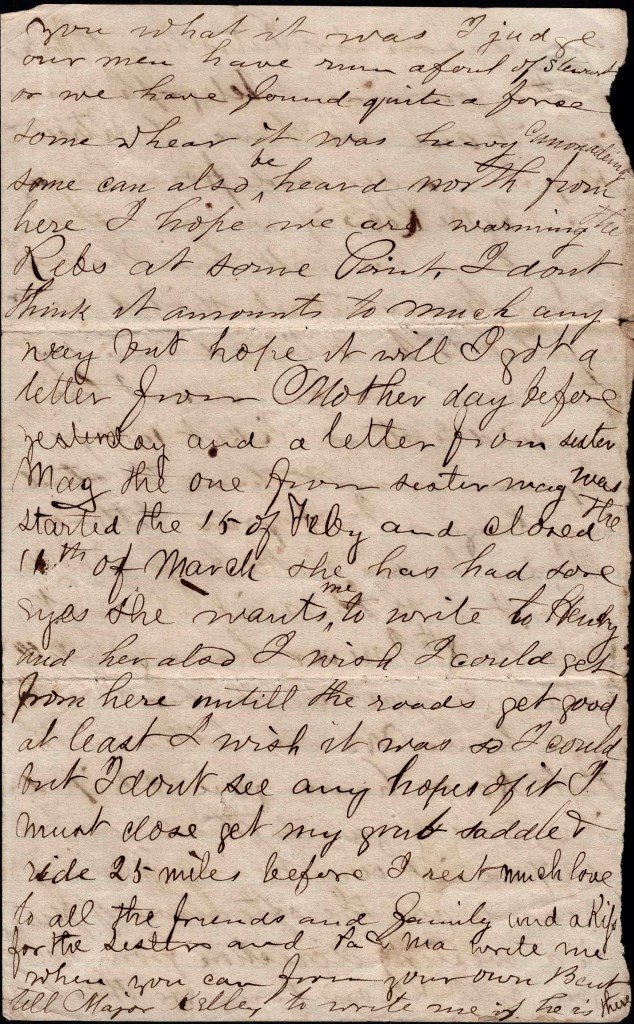 you what it was I judge
our men have run afoul of Stewart
or we have found quite a force
some whear it was heavy Cannonading
some can also be heard north from
here I hope we are warming the
Rebs at some Point, I dont
think it amounts to much any
way but hope it will I got a
letter from Mother day before
yesterday and a letter from sister
Mag the one from sister mag was
started the 15 of Feby and closed the
11th of March she has had sore
eyes she wants me to write to Henry
and her also I wish I could get
from here untill the roads get good
at least I wish it was so I could
but I dont see any hopes of it I
must close get my grub saddle &
ride 25 miles before I rest much love
to all the friends and family and a Kiss
for the sisters and Pa & Ma write me
when you can from your own Bent
tell Major Kelley to write me if he is there